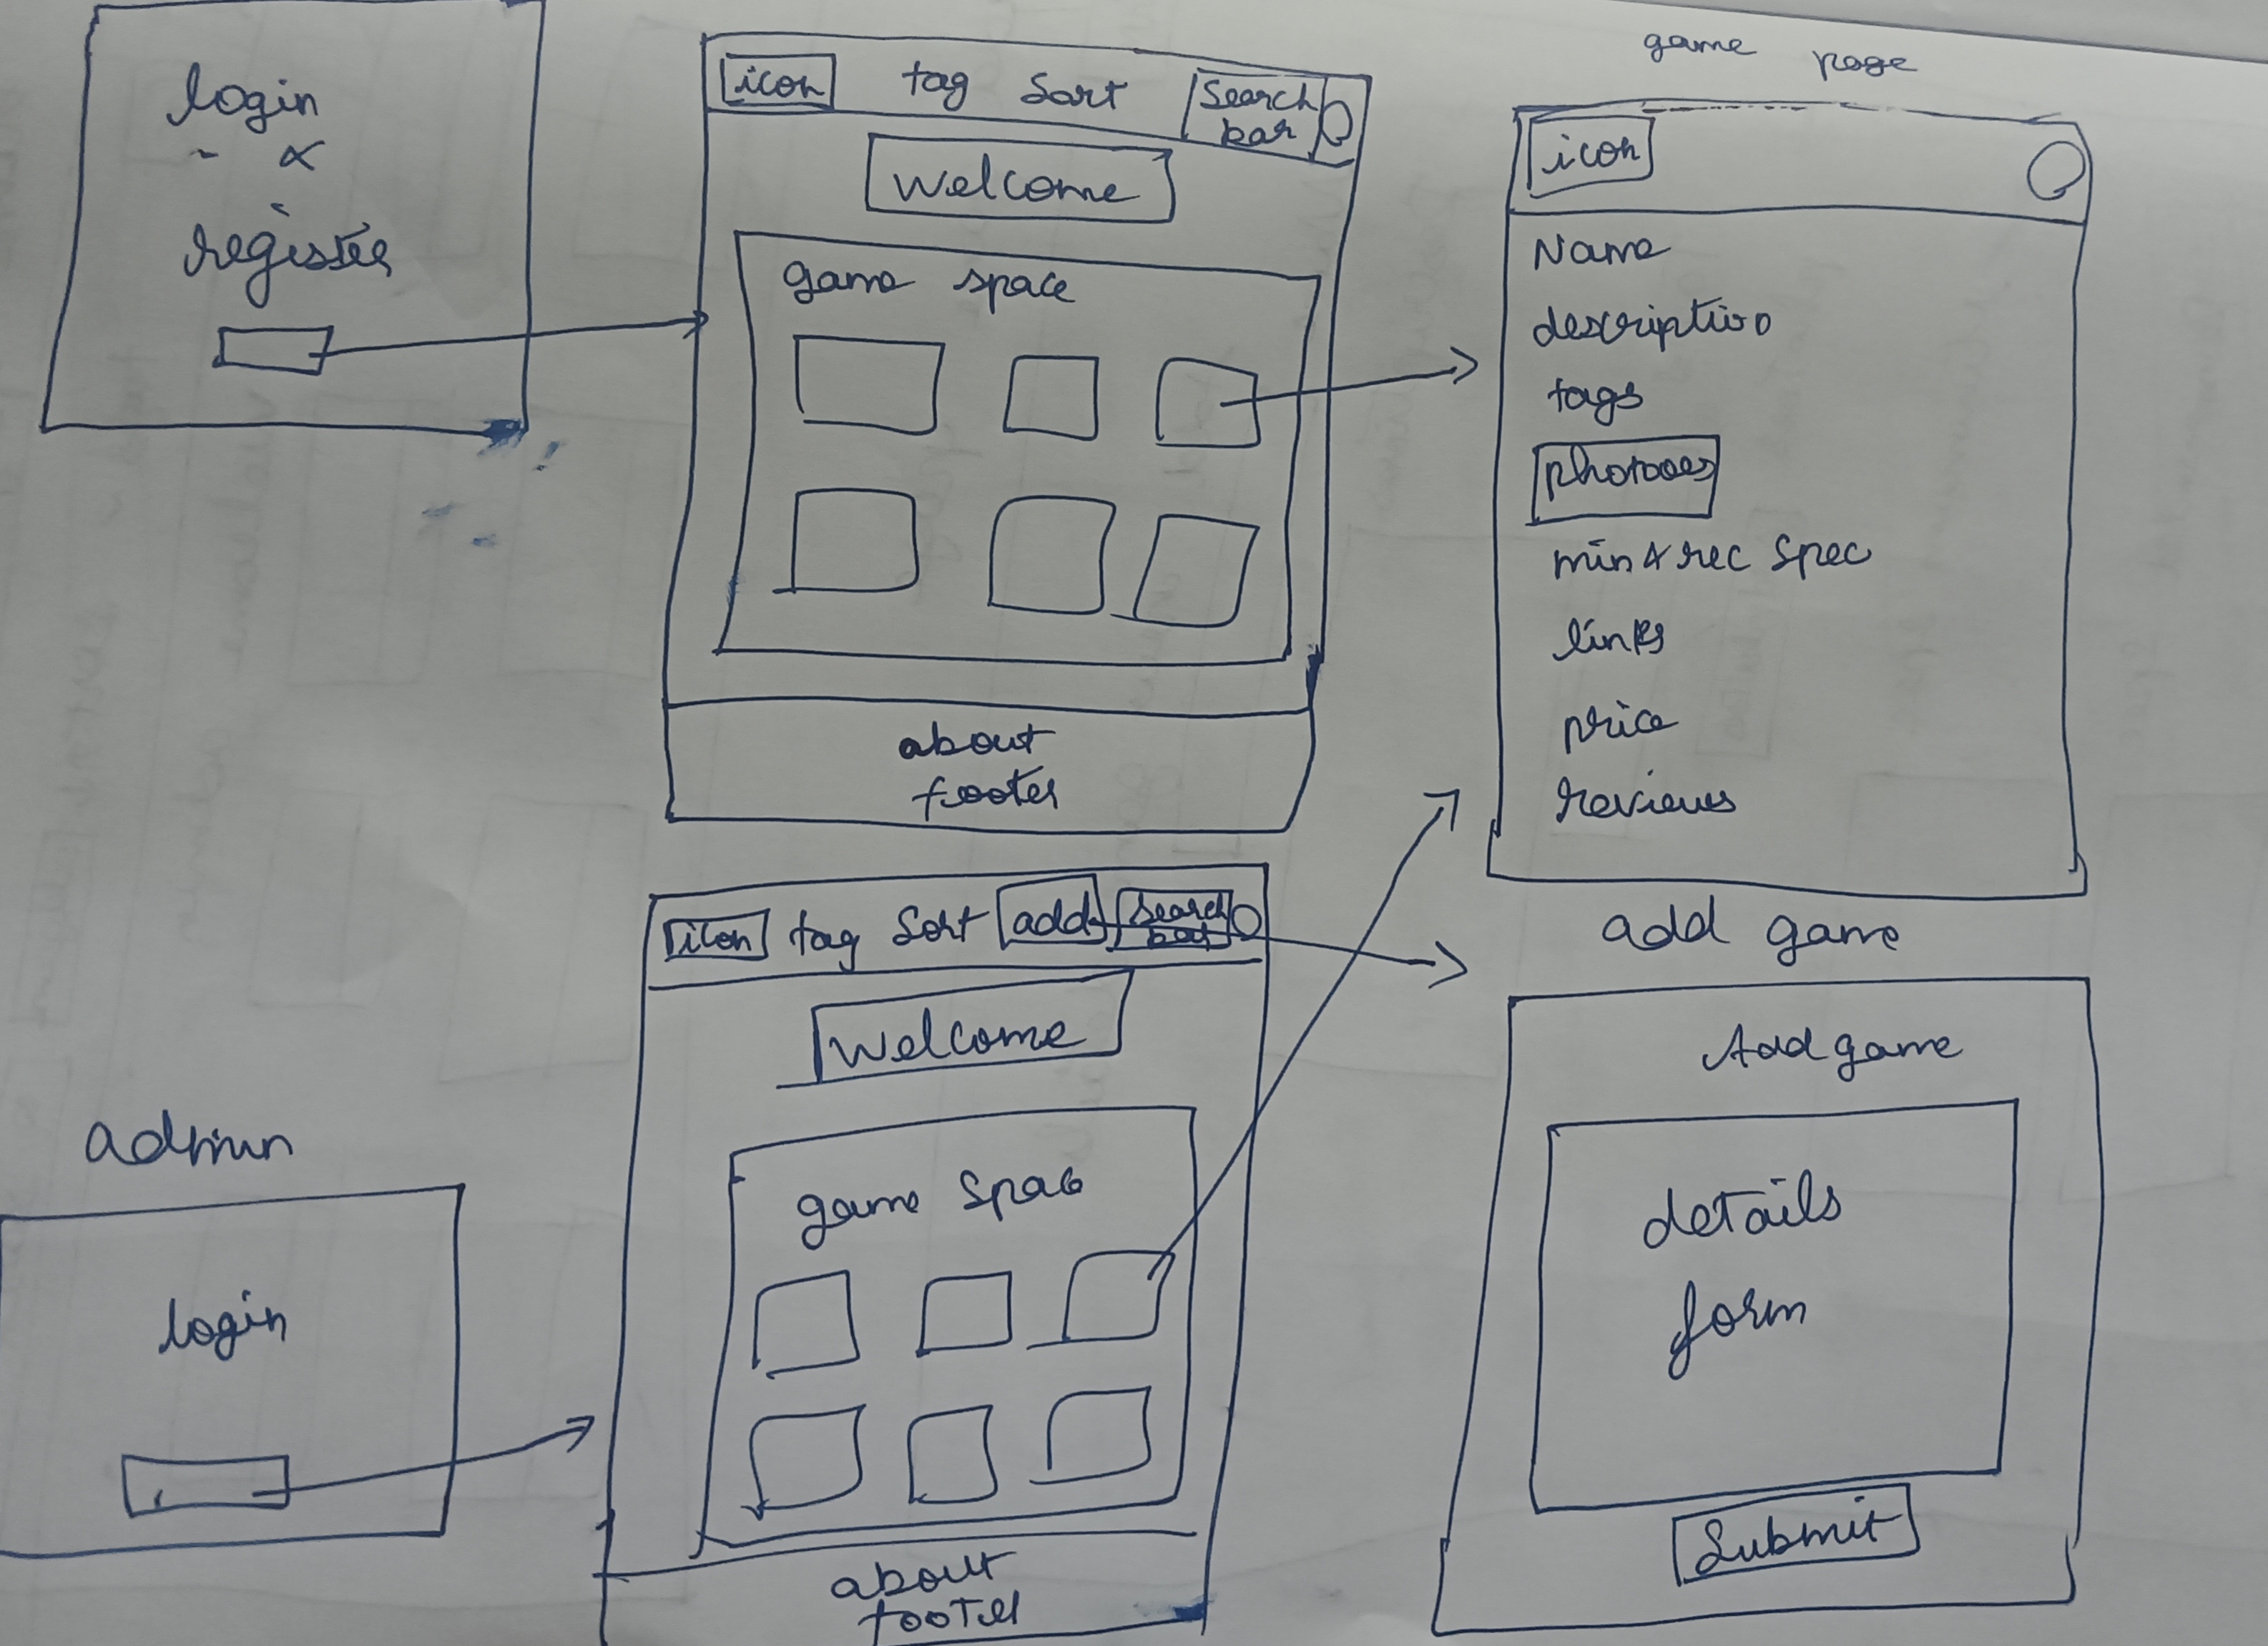 login
register
icon tag Sort Search bar
Welcome
game space
about
footer
game page
icon
Name
description
tags
min & rec Spec
links
price
reviews
admin
login
icon tag Sort add Search bar
Welcome
game space
about
footer
add game
Add game
details
form
Submit